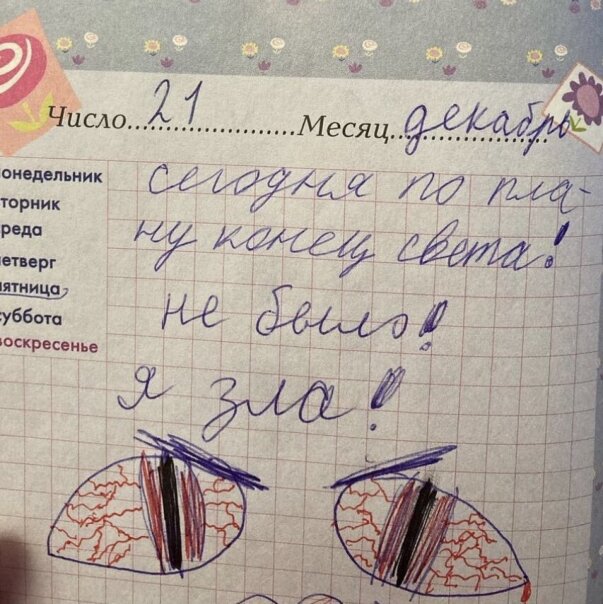 Число...21...Месяц...декабрь
Понедельник
вторник
среда
четверг
пятница
суббота
воскресенье
сегодня по пла-
ну конец света!
не было!
я зла!